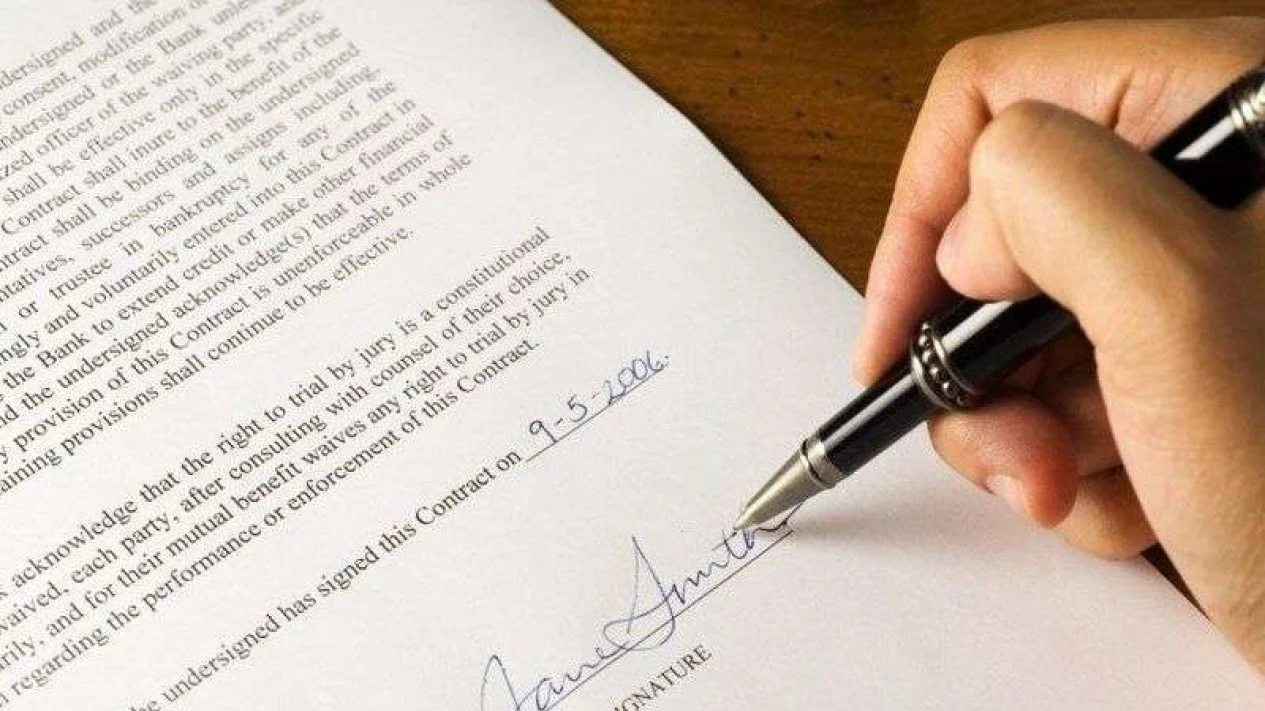 dersigned and the
consent, modification or
ndersigned or the Bank unless
zed officer of the waiving party, and
shall be effective only in the specific
Contract shall inure to the benefit of the
ntract shall be binding on the undersigned
ntatives, successors and assigns including,
or trustee in bankruptcy for any of the
ngly and voluntarily entered into this Contract in
the Bank to extend credit or make other financial
d the undersigned acknowledge(s) that the terms of
y provision of this Contract is unenforceable in whole
aining provisions shall continue to be effective.
acknowledge that the right to trial by jury is a constitutional
waived, each party, after consulting with counsel of their choice,
rily, and for their mutual benefit waives any right to trial by jury in
n regarding the performance or enforcement of this Contract.
he undersigned has signed this Contract on 9-5-2006
Jane Smith
IGNATURE